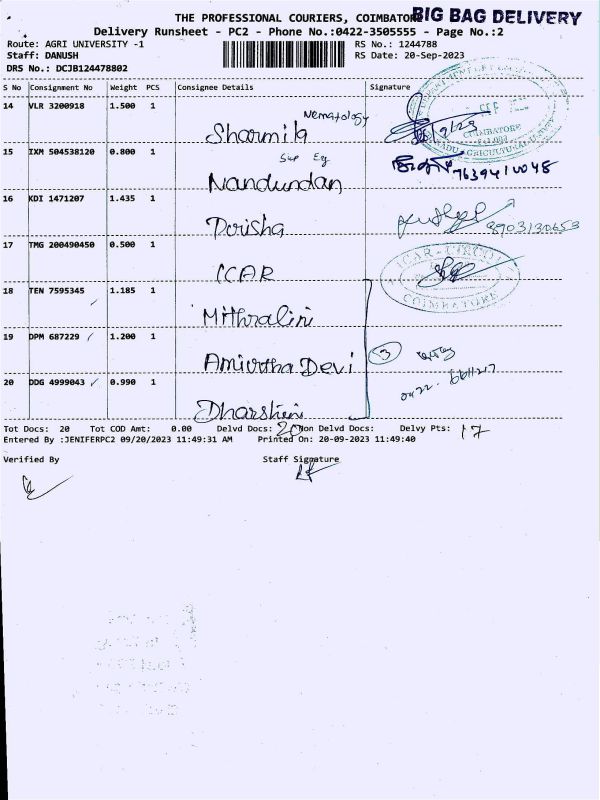 THE PROFESSIONAL COURIERS, COIMBATORE
BIG BAG DELIVERY
Delivery Runsheet - PC2 - Phone No.:0422-3505555 - Page No.:2
Route: AGRI UNIVERSITY -1
RS No.: 1244788
Staff: DANUSH
RS Date: 20-Sep-2023
DRS No.: DCJB124478802
S No Consignment No Weight PCS Consignee Details Signature
14 VLR 3200918 1.500 1
Nematology
Sharmila
COIMBATORE
15 IXM 504538120 0.800 1
Nandundan
7639410048
16 KDI 1471207 1.435 1
Dorisha
8903130653
17 TMG 200490450 0.500 1
ICAR
COIMBATORE
18 TEN 7595345 1.185 1
Mithralini
19 DPM 687229 1.200 1
3
Amirtha Devi
20 DDG 4999043 0.990 1
0422 6611217
Dharshini
Tot Docs: 20 Tot COD Amt: 0.00 Delvd Docs: 20 Non Delvd Docs: Delvy Pts: 17
Entered By :JENIFERPC2 09/20/2023 11:49:31 AM Printed On: 20-09-2023 11:49:40
Verified By Staff Signature